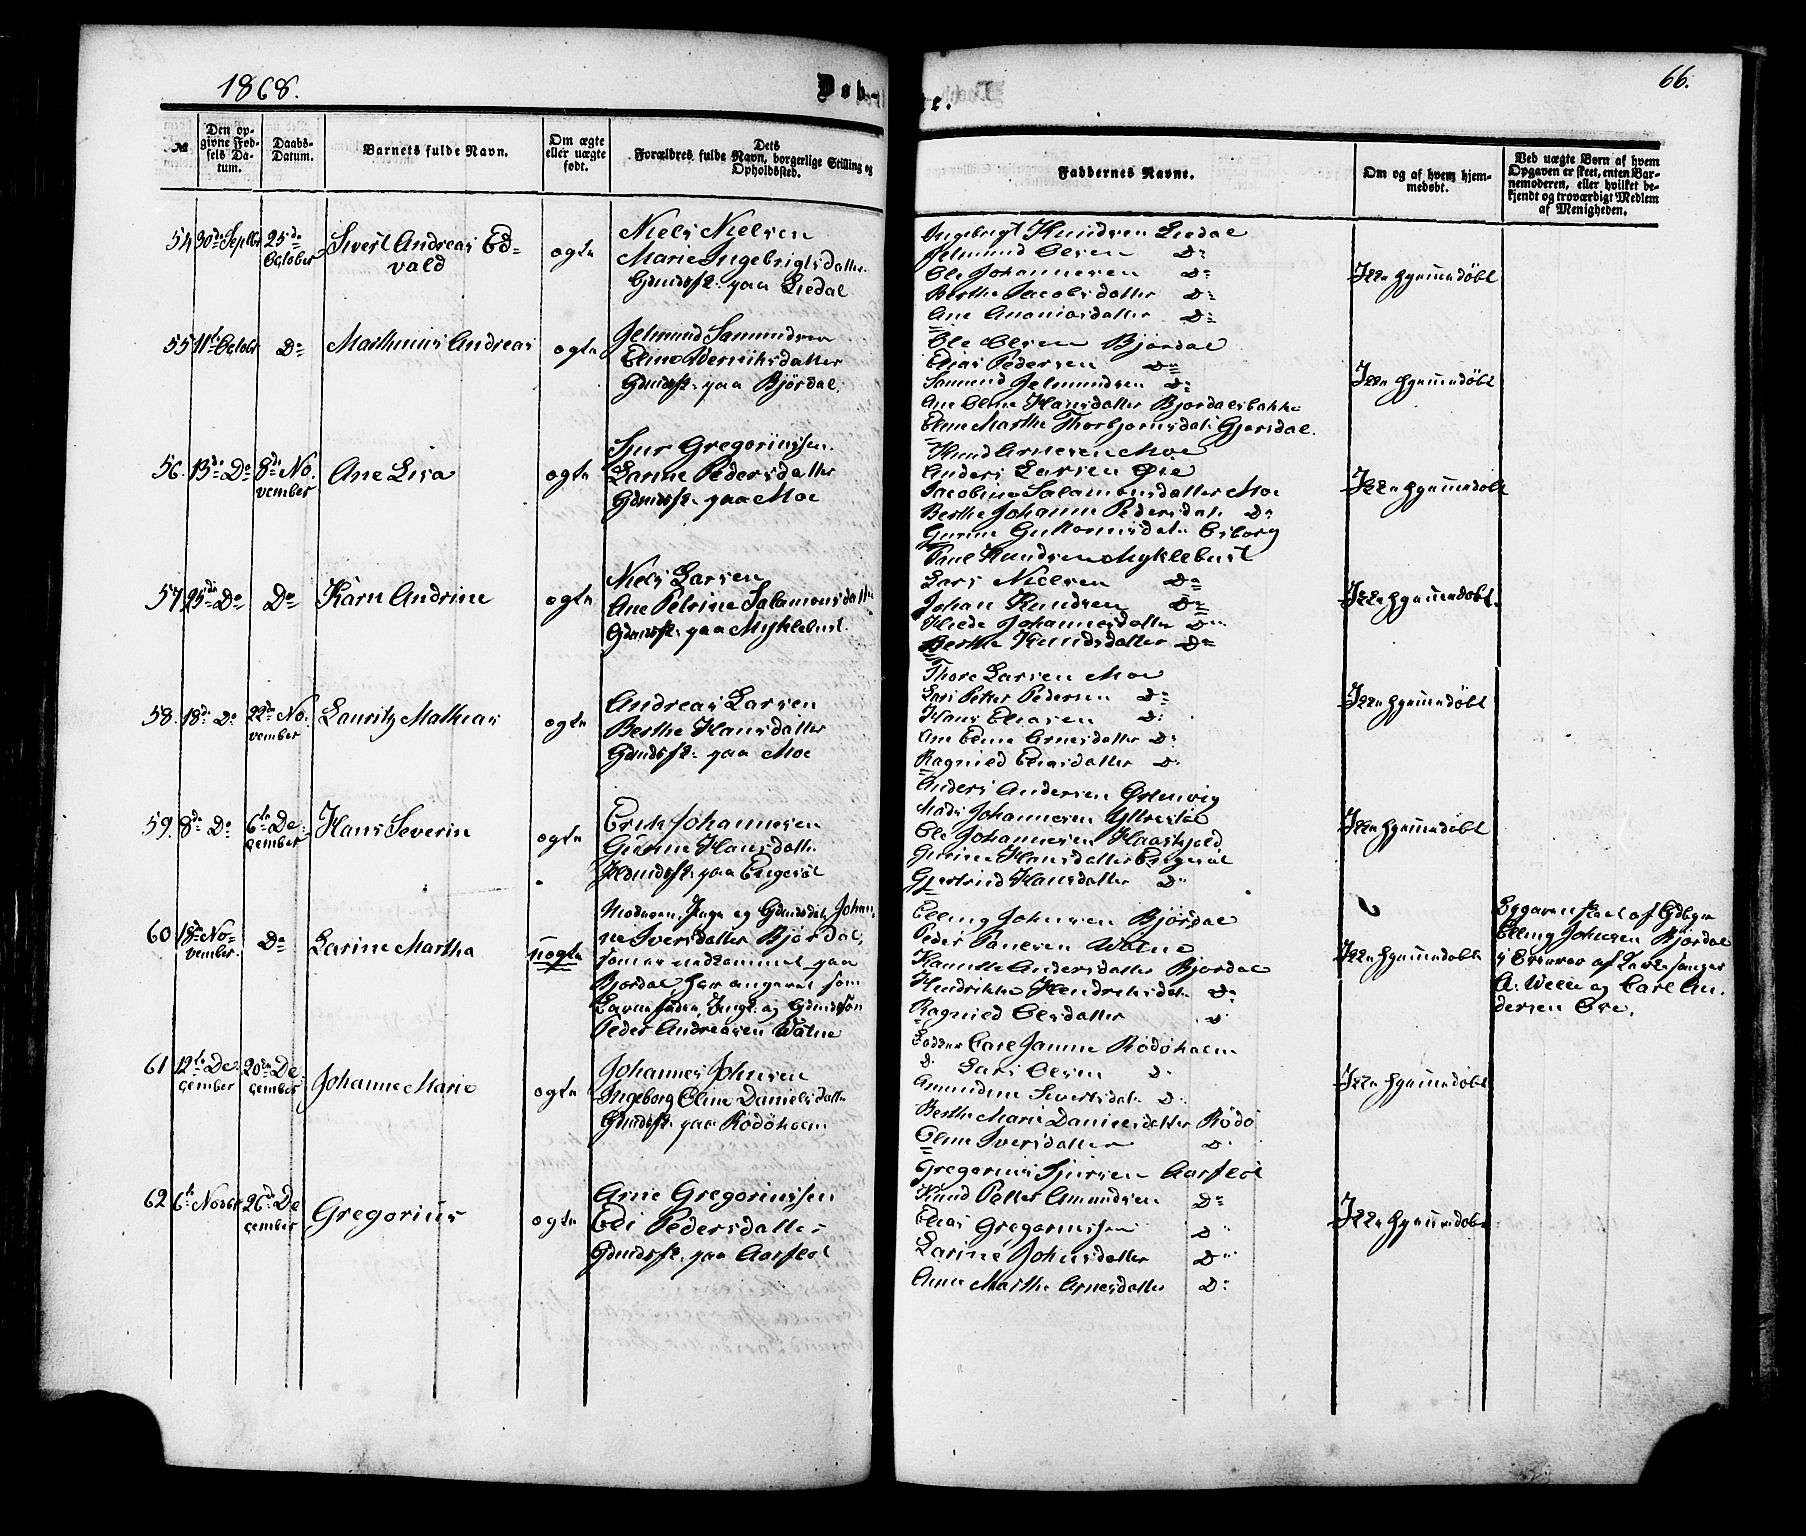 1868.
Døb-
te.
66.
№
Den op-
givne Fød-
sels Da-
tum.
Daabs-
Datum.
Barnets fulde Navn.
Om ægte
eller uægte
født.
Dets
Forældres fulde Navn, borgerlige Stilling og
Opholdssted.
Faddernes Navne.
Om og af hvem hjem-
medøbt.
Ved uægte Børn af hvem
Opgaven er skeet, enten Bar-
nemoderen, eller hvilket be-
kjendt og troværdigt Medlem
af Menigheden.
54 30de Septbr 25de October
Sivert Andreas Ed-
vald
ægte
Niels Nielsen
Marie Ingebrigtsdatter
Gdmdsfk. paa Liedal
Ingebrigt Knudsen Liedal
Jetmund Olsen Do
Ole Johannesen Do
Berthe Jacobsdatter Do
Ane Ananiasdatter Do
Ikke hjemmedøbt
55 11te Octobr Do
Mathinus Andreas
ægte
Jetmund Samundsen
Eline Henriksdatter
Gdmdsfk. paa Bjørdal.
Ole Olsen Bjørdal
Elias Pedersen Do
Samund Jetmundsen Do
Ane Oline Hansdatter Bjørdalsbakke
Eline Marthe Thorbjørnsdat. Gjersdal.
Ikke hjemmedøbt
56. 13de Do 8de No-
vember
Ane Lisa
ægte
Sjur Gregoriussen
Larine Pedersdatter
Gdmdsfk. paa Moe
Knud Arnesen Moe
Anders Larsen Øie
Jacobine Salamonsdatter Moe
Berthe Johanne Pedersdat. Do
Gurine Guttormsdat. Osborg
Ikke hjemmedøbt
57 25de Do Do
Karn Andrine
ægte
Niels Larsen
Ane Petrine Salamonsdatter
Gdmdsfk. paa Myklebust.
Paul Knudsen Myklebust
Lars Nielsen Do
Johan Knudsen Do
Johannesdatter Do
Berthe Knudsdatter Do
Ikke hjemmedøbt.
58. 18de Do 22de No-
vember
Lauritz Mathias
ægte
Andreas Larsen
Berthe Hansdatter
Gdmdsfk. paa Moe
Thore Larsen Moe
Lars Petter Pedersen Do
Hans Eliasen Do
Ane Eline Arnesdatter Do
Ragnild Eliasdatter Do
Ikke hjemmedøbt
59. 8de Do 6te De-
cember
Hans Severin
ægte
Erik Johannesen
Gurine Hansdatter
Hdmdsfk. paa Engesæt
Anders Andersen Østenvig
Mads Johannesen
Ole Johannesen Haaskjold
Gurine Hansdatter Engesæt
Gjertrud Hansdatter Do
Ikke hjemmedøbt
60 18de No-
vember. Do
Larine Martha
uægte
Moderen, Pige og Gdmdsdtr Johan-
ne Siversdatter Bjørdal,
som er nedkommet paa
Bjørdal har angivet som
Barnefader, Ungk. og Gdmdssøn
Peder Andreasen Watne
Elling Johnsen Bjørdal
Peder Watne
Andersdatter Bjørdal
Hendrikke Hendriksdat. Do
Ragnild Olsdatter Do
Ikke hjemmedøbt
Opgaven skeet af Gdbgr
Elling Johnsen Bjørdal
i Nærvær af Kirkesanger
A. Welle og Carl An-
dersen Øie.
61 12te De-
cember 20de De-
cember
Johanne Marie
ægte
Johannes Johnsen
Ingeborg Eline Danielsdatter
Gdmdsfk. paa Rødøholm
Carl Rødøholm
Do Lars Olsen Do
Amundine Sivertsdat. Do
Berthe Marie Danielsdatter Rødø
Eline Iversdatter Do
Ikke hjemmedøbt
62 6te Novbr 26de De-
cember
Gregorius
ægte
Arne Gregoriussen
Eli Pedersdatter
Gdmdsfk. paa Aarflot
Gregorius Sjursen Aarflot
Knud Petter Amundsen Do
Elias Gregoriussen Do
Larine Johnsdatter Do
Anne Marthe Arnesdatter Do
Ikke hjemmedøbt